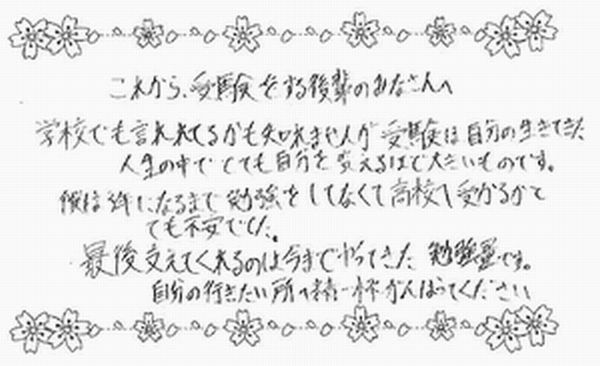 これから、受験をする後輩のみなさんへ
学校でも言われてるかも知れませんが受験は自分の生きてきた
人生の中でとても自分を変えるほど大きいものです。
僕は年になるまで勉強をしてなくて高校へ受かるかと
ても不安でした。
最後支えてくれるのは今までやってきた勉強量です。
自分の行きたい所へ精一杯がんばってください